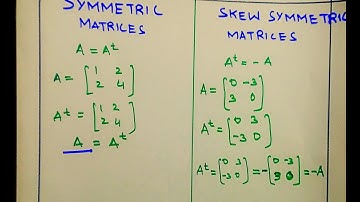 SYMMETRIC
MATRICES
A = Aᵗ
A = [1 2
2 4]
Aᵗ = [1 2
2 4]
A = Aᵗ
SKEW SYMMETRIC
MATRICES
Aᵗ = -A
A = [0 -3
3 0]
Aᵗ = [0 3
-3 0]
Aᵗ = [0 3
-3 0] = -[0 -3
3 0] = -A